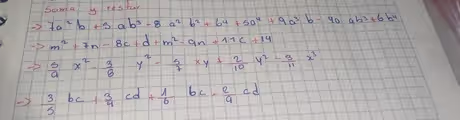 Suma y resta
→ 7a² b + 5 ab³ - 8 a² b² + b⁴ + 5a⁴ + 9a³ b - 40 ab³ + 6b⁴
→ m² + 7n - 8c + d + m² - 9n + 11c + 14
→ 5/9 x² - 3/8 y² - 5/7 xy + 2/10 y² - 3/11 x²
→ 3/5 bc + 3/4 cd + 1/6 bc - 2/9 cd